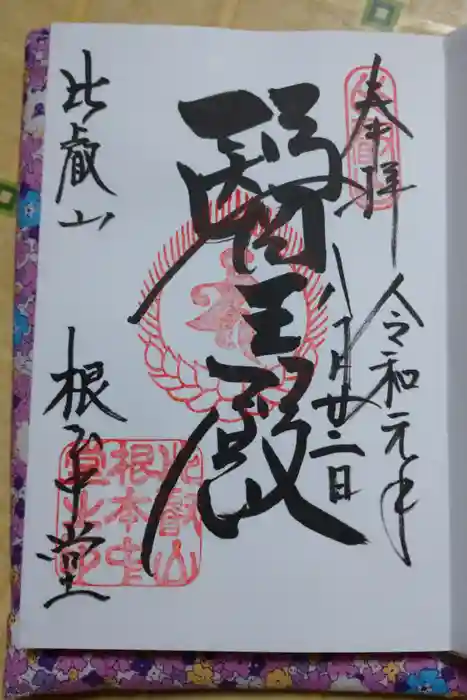 奉拝
令和元年
八月廿二日
醫王殿
比叡山
根本中堂
比叡山
根本中
堂之印